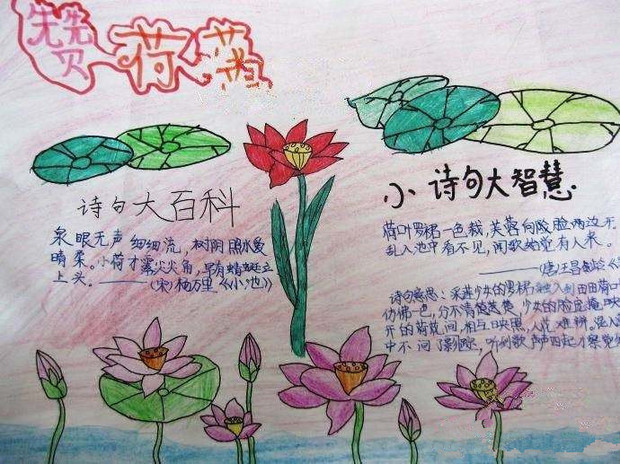 赞荷
诗句大百科
泉眼无声细细流，树阴照水爱
晴柔。小荷才露尖尖角，早有蜻蜓立
上头。——（宋）杨万里《小池》
小诗句大智慧
荷叶罗裙一色裁，芙蓉向脸两边
乱入池中看不见，闻歌始觉有人来。
——（唐）王昌龄《
诗句意思：采莲少女的罗裙融入到田田荷
仿佛一色，分不清楚，少女的脸庞掩映
开的荷花间，相互映照，人花难辨。混入
中不间了踪影，听到歌声四起才察觉